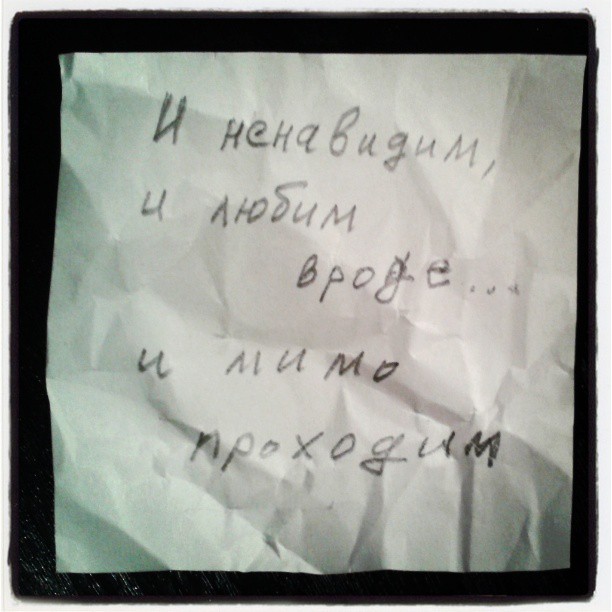 И ненавидим,
и любим
вроде...
и мимо
проходим